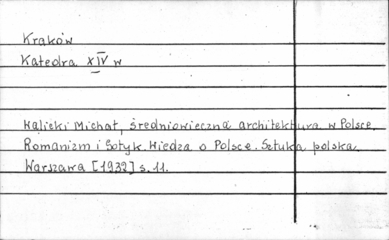 Kraków
Katedra XIV w
Walicki Michał, średniowieczna architektura w Polsce.
Romanizm i Gotyk. Wiedza o Polsce. Sztuka polska.
Warszawa [1932] s. 11.